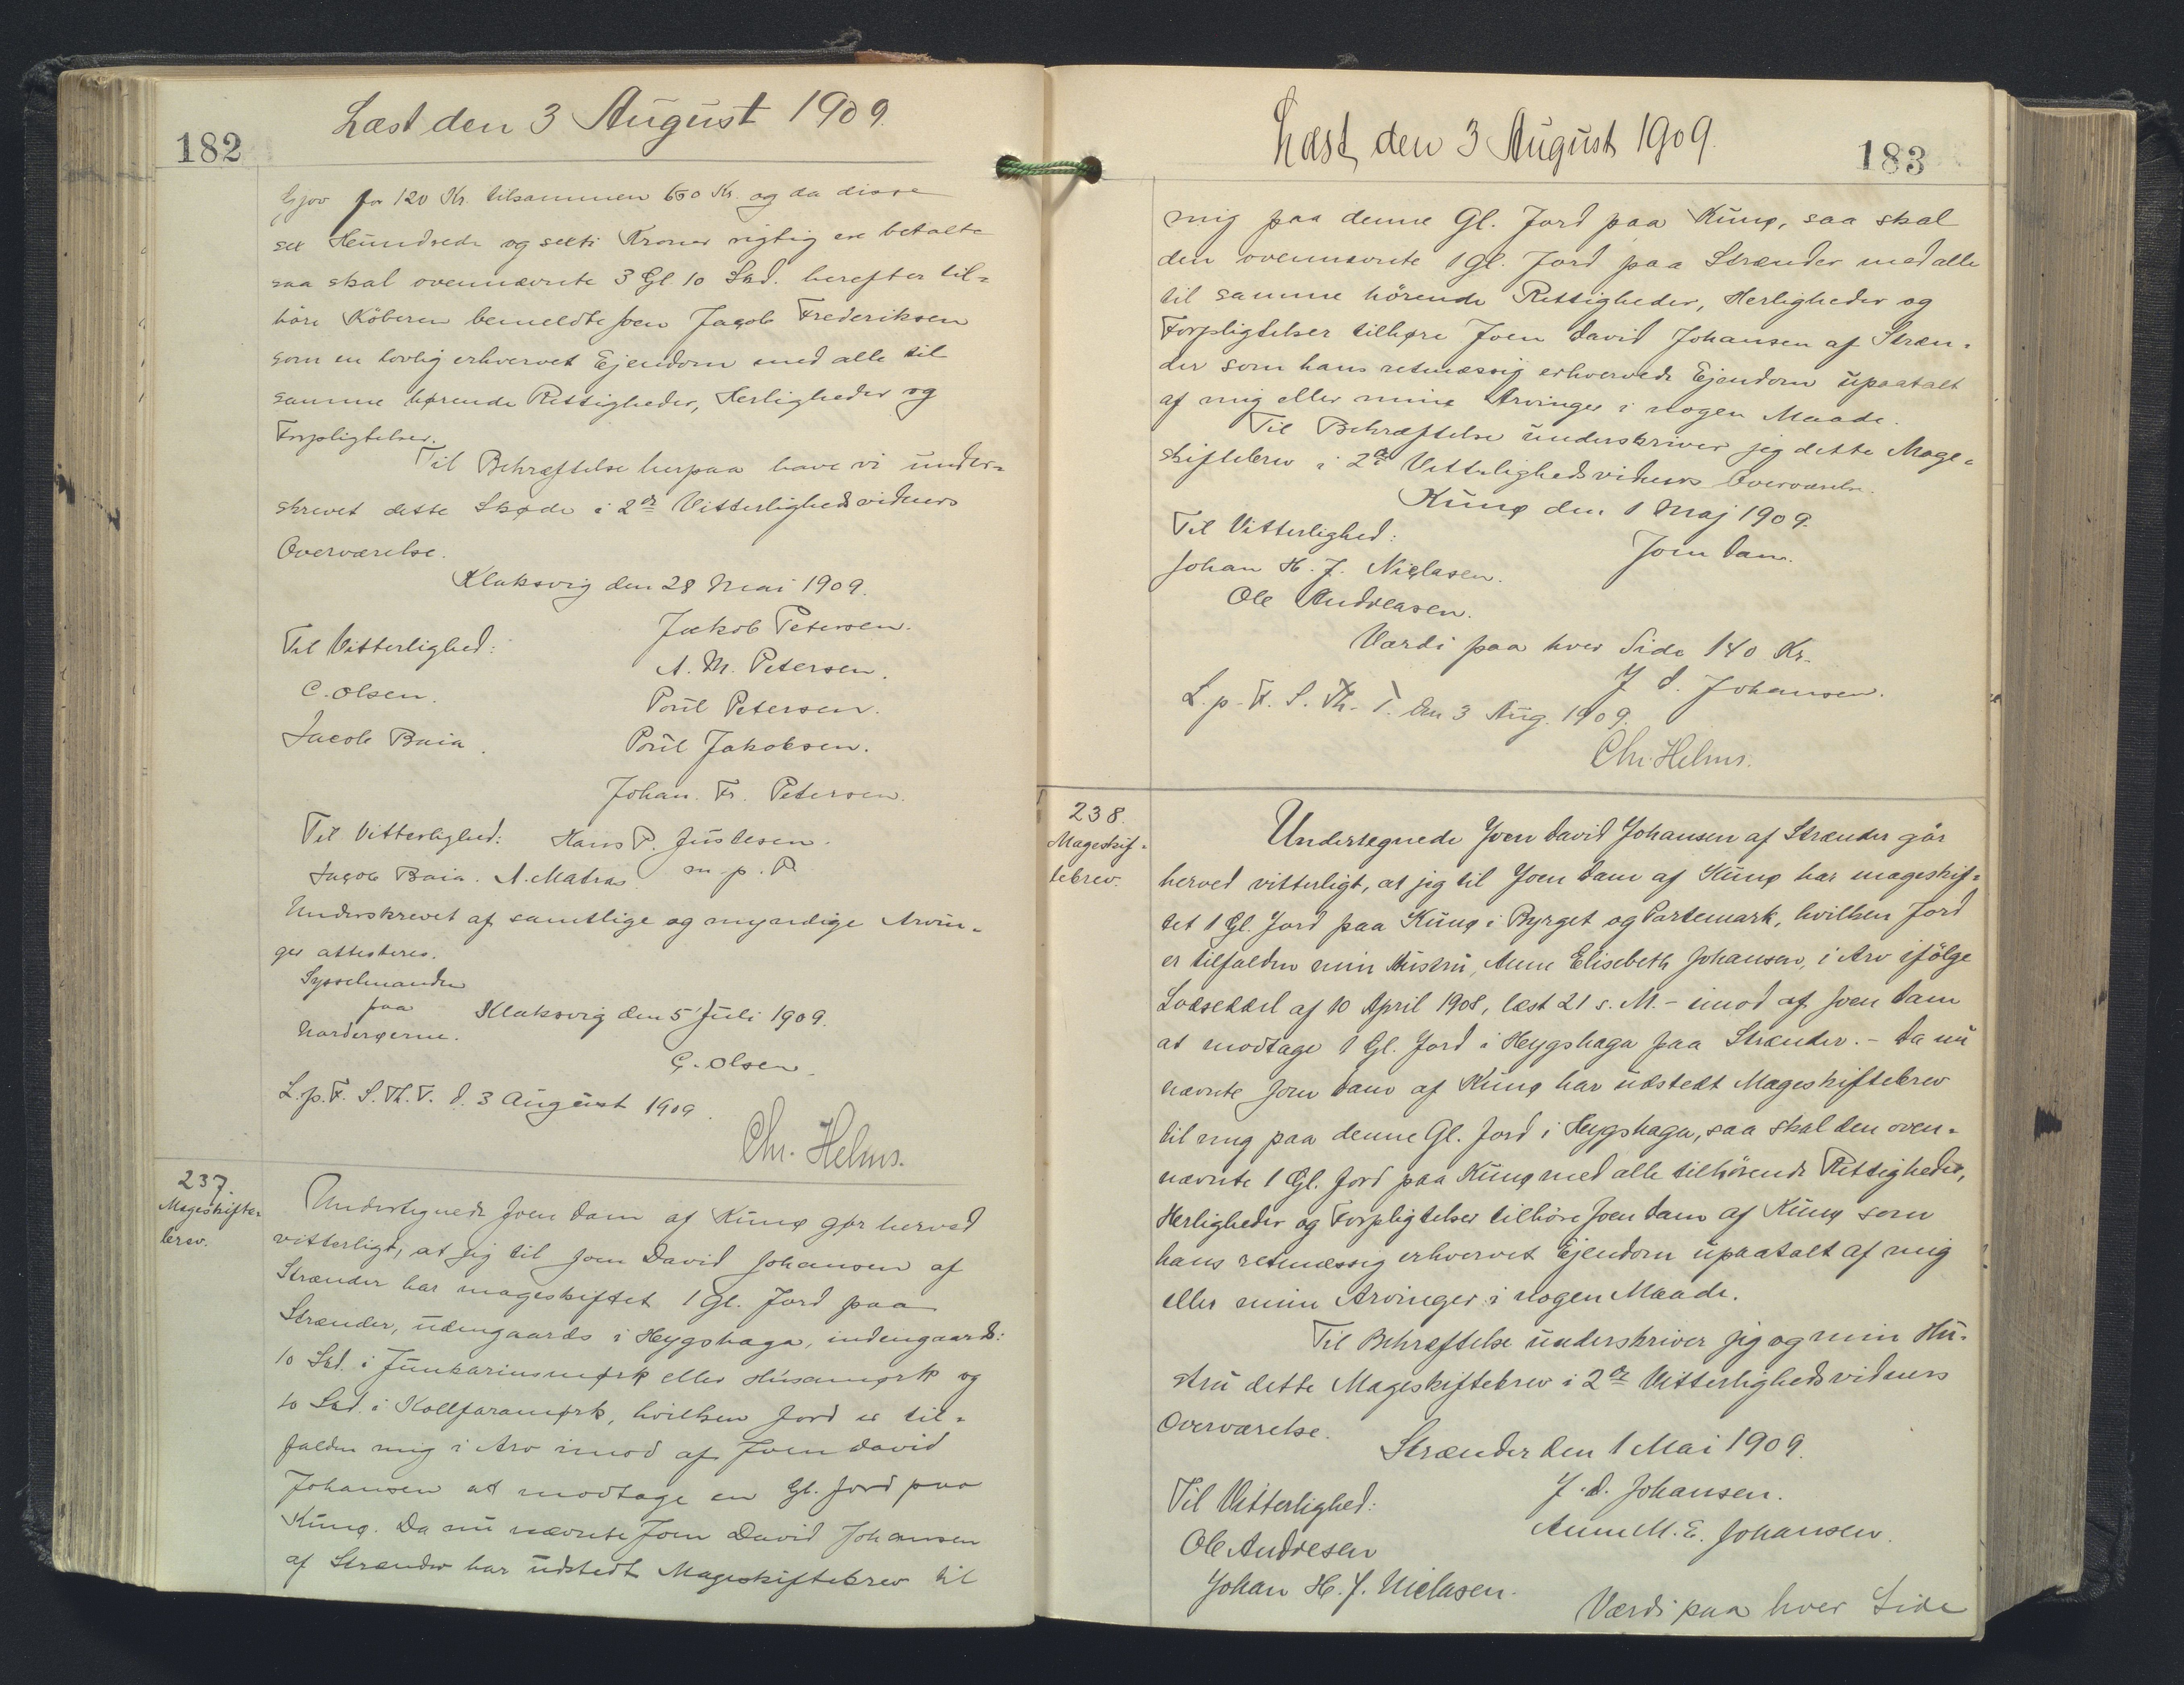 182
Læst den 3 August 1909.
Gjov for 120 Kr. tilsammen 660 Kr. og da disse
sex Hundrede og sexti Kroner rigtig ere betalte
saa skal ovennævnte 3 Gl. 10 Skd. herefter til=
høre Köberen bemeldte Joen Jacob Frederiksen
som en lovlig erhvervet Ejendom med alle til
samme hørende Rettigheder, Herligheder og
Forpligtelser.
Til Bekræftelse herpaa have vi under=
skrevet dette Skøde i 2de Vitterlighedsvidners
Overværelse.
Klaksvig den 28 Mai 1909.
Jakob Petersen.
Til Vitterlighed:
A. M. Petersen.
C. Olsen.
Poul Petersen.
Jacob Baia.
Poul Jakobsen.
Johan. Fr. Petersen.
Til Vitterlighed: Hans P. Justesen.
Jacob Baia. A. Matras. m. p. P
Underskrevet af samtlige og myndige Arvin=
ger attesteres.
Sysselmanden
paa Klaksvig den 5 Juli 1909.
Norderøerne.
C. Olsen.
L. p. F. S. Th. V. d. 3 August 1909.
Chr. Helms.
237.
Mageskifte=
brev.
Undertegnede Joen Dam af Kunø gør herved
vitterligt, at jeg til Joen David Johansen af
Strænder har mageskiftet 1 Gl. Jord paa
Strænder, udengaards i Heygshaga, indengaards:
10 Skd. i Junkarinsmørk eller Húsamørk og
10 Skd. i Kollfaramørk, hvilken Jord er til=
falden mig i Arv imod af Joen David
Johansen at modtage en Gl. Jord paa
Kunø. Da nu nævnte Joen David Johansen
af Strænder har udstedt Mageskiftebrev til
Læst den 3 August 1909.
183
mig paa denne Gl. Jord paa Kunø, saa skal
den ovennævnte 1 Gl. Jord paa Strænder med alle
til samme hörende Rettigheder, Herligheder og
Forpligtelser tilhøre Joen David Johansen af Stræn=
der som hans retmæssig erhvervede Ejendom upaatalt
af mig eller mine Arvinger i nogen Maade.
Til Bekræftelse underskriver jeg dette Mage=
skiftebrev i 2de Vitterlighedsvidners Overværelse.
Kunø den 1 Maj 1909.
Til Vitterlighed:
Joen Dam.
Johan H. J. Niclasen.
Ole Andreasen.
Værdi paa hver Side 140 Kr.
J. D. Johansen.
L. p. F. S. Th. T. den 3 Aug. 1909.
Chr. Helms.
238.
Mageskif=
tebrev.
Undertegnede Joen David Johansen af Strænder gör
herved vitterligt, at jeg til Joen Dam af Kunø har mageskif=
tet 1 Gl. Jord paa Kunø i Byrget og Partemark, hvilken Jord
er tilfalden min Hustru, Anne Elisebeth Johansen, i Arv ifölge
Lodseddel af 10 April 1908, læst 21 s. M. - imod af Joen Dam
at modtage 1 Gl. Jord i Heygshaga paa Strænder. - Da nu
nævnte Joen Dam af Kunø har udstedt Mageskiftebrev
til mig paa denne Gl. Jord i Heygshaga, saa skal den oven=
nævnte 1 Gl. Jord paa Kunø med alle tilhörende Rettigheder,
Herligheder og Forpligtelser tilhöre Joen Dam af Kunø som
hans retmæssig erhvervet Ejendom upaatalt af mig
eller mine Arvinger i nogen Maade.
Til Bekræftelse underskriver jeg og min Hu=
stru dette Mageskiftebrev i 2de Vitterlighedsvidners
Overværelse.
Strænder den 1 Mai 1909.
J. D. Johansen.
Til Vitterlighed:
Anne M. E. Johansen.
Ole Andresen
Johan H. J. Niclasen.
Værdi paa hver Side